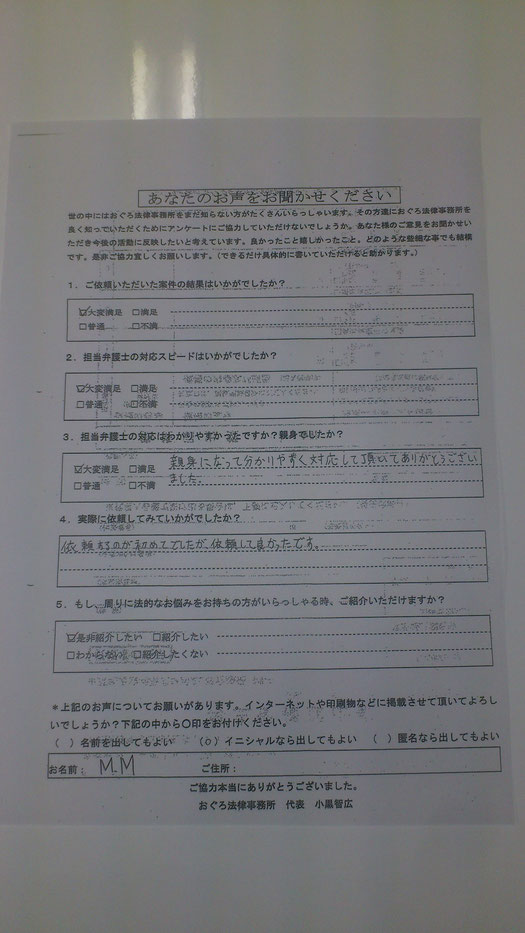 あなたのお声をお聞かせください
世の中にはおぐろ法律事務所をまだ知らない方がたくさんいらっしゃいます。その方達におぐろ法律事務所を
良く知っていただくためにアンケートにご協力していただけないでしょうか。あなた様のご意見をお聞かせい
ただき今後の活動に反映したいと考えています。良かったこと嬉しかったこと。どのような些細な事でも結構
です。是非ご協力宜しくお願いします。(できるだけ具体的に書いていただけると助かります。)
1．ご依頼いただいた案件の結果はいかがでしたか？
☑大変満足 □満足
□普通 □不満
2．担当弁護士の対応スピードはいかがでしたか？
☑大変満足 □満足
□普通 □不満
3．担当弁護士の対応はわかりやすかったですか？親身でしたか？
☑大変満足 □満足 親身になって分かりやすく対応して頂いてありがとうござい
□普通 □不満 ました。
4．実際に依頼してみていかがでしたか？
依頼するのが初めてでしたが、依頼して良かったです。
5．もし、周りに法的なお悩みをお持ちの方がいらっしゃる時、ご紹介いただけますか？
☑是非紹介したい □紹介したい
□わからない □紹介したくない
＊上記のお声についてお願いがあります。インターネットや印刷物などに掲載させて頂いてよろし
いでしょうか？下記の中から〇印をお付けください。
（ ）名前を出してもよい （○）イニシャルなら出してもよい （ ）匿名なら出してもよい
お名前： M.M ご住所：
ご協力本当にありがとうございました。
おぐろ法律事務所 代表 小黒智広